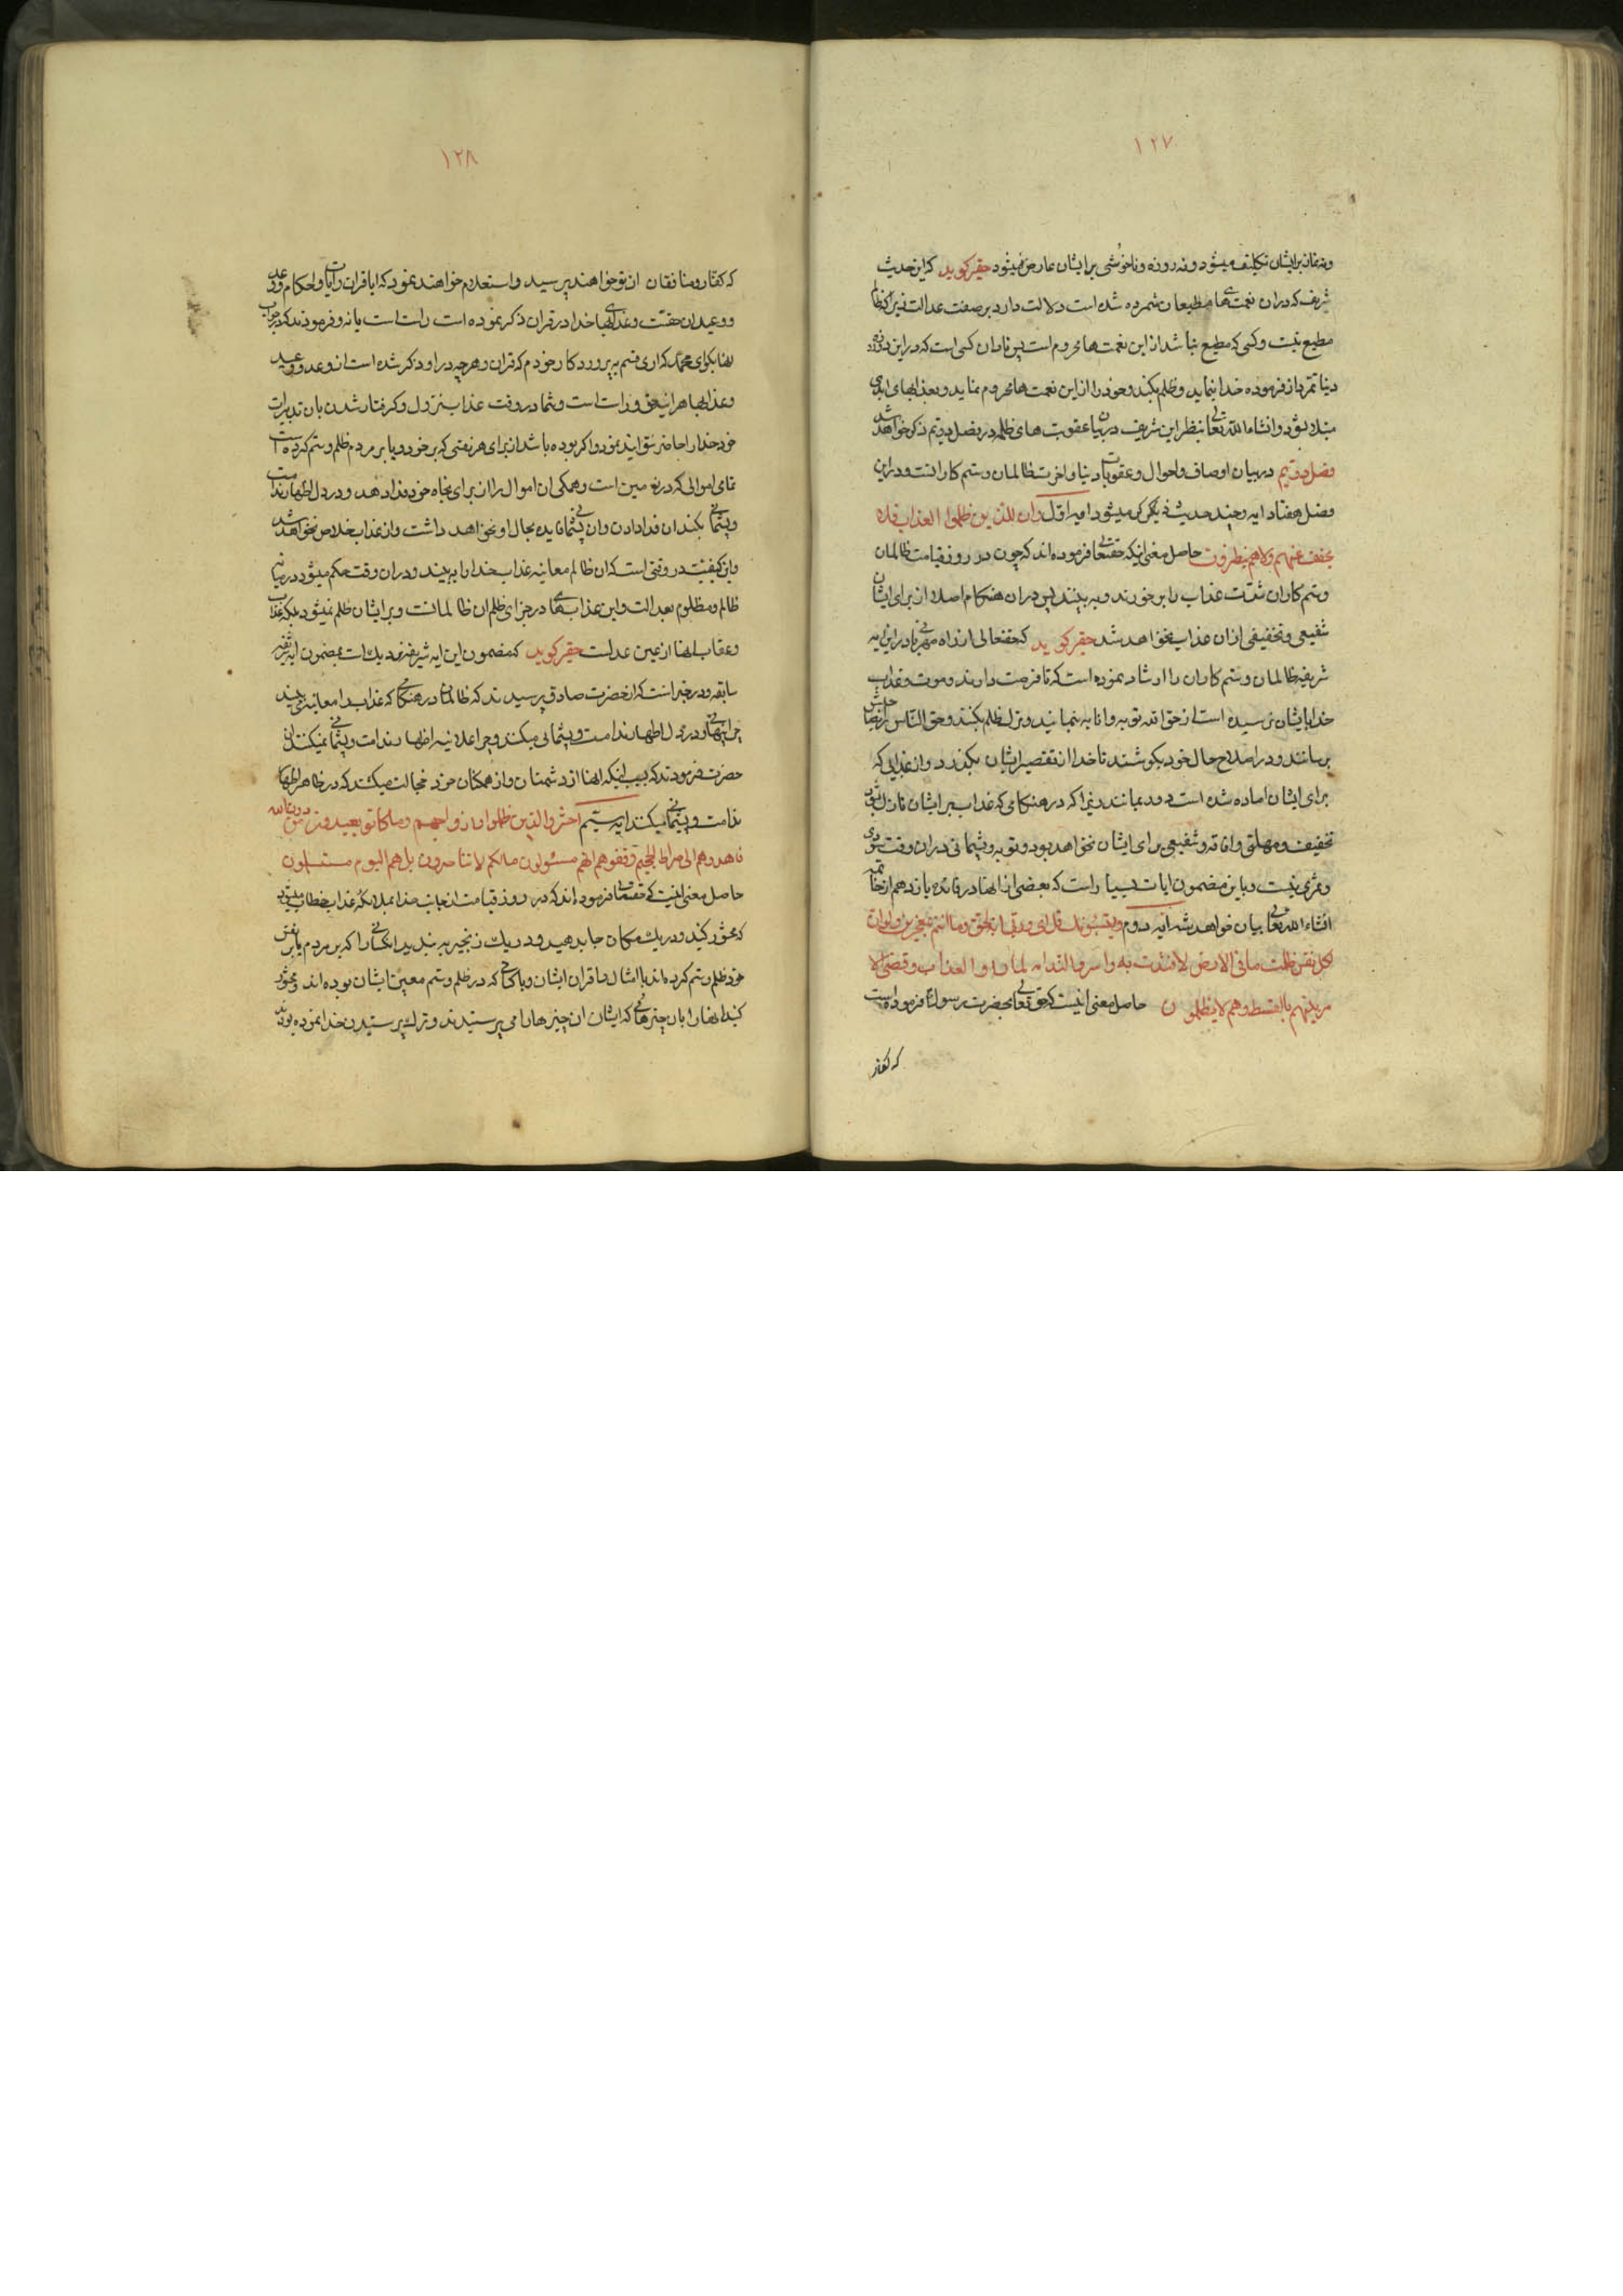 ۱۲۷
ونه نماز برایشان تکلیف میشود ونه روزه وناخوشی برایشان عارض نمیشود حقیر کوید که این حدیث
شریف که دران نعمت های مطیعان شمرده شده است دلالت دارد بر صفت عدالت زیرا که ظالم
مطیع نیست وکسی که مطیع نباشد از این نعمت ها محروم است پس نادان کسی است که در این دو روزه
دنیا تمرد از فرموده خدا بنماید وظلم بکند وخود را از این نعمت ها محروم نماید وبعذابهای ابدی
مبتلا شود وانشاء الله تعالی نظر این شریف در بیان عقوبت های ظلمه در فصل دویم ذکر خواهد شد
فصل دویم در بیان اوصاف واحوال وعقوبات دنیا واخرت ظالمان وستم کارانست ودر این
فصل هفتاد ایه وچند حدیث ذکر میشود ایه اول وان للذین ظلموا العذاب فلا
یخفف عنهم ولا هم ینظرون حاصل معنی اینکه حقتعالی فرموده اند که چون در روز قیامت ظالمان
وستم کاران شدت عذاب را بر خورند وبه بینند پس دران هنکام اصلا از برای ایشان
شفیعی وتخفیفی ازان عذاب نخواهد شد حقیر کوید که حقتعالی از راه مهربانی در این ایه
شریفه ظالمان وستم کاران را ارشاد نموده است که تا فرصت دارند وموت وعذاب
خدا بایشان نرسیده است از حق الله توبه وانابه بنمایند وترک ظلم بکنند وحق الناس را بصاحبش
برسانند ودر اصلاح حال خود بکوشند تا خدا از تقصیر ایشان بکذرد واز عذابی که
برای ایشان اماده شده است دور بمانند زیرا که در هنکامی که عذاب بر ایشان نازل شود
تخفیف ومهلتی وافاقه وشفیعی برای ایشان نخواهد بود وتوبه وپشیمانی دران وقت سودی
وثمری نیست وباین مضمون ایات بسیار است که بعضی از انها در فائده یازدهم از خاتمه
انشاء الله تعالی بیان خواهد شد ایه دوم ویستنبئونک قل ای وربی انه لحق وما انتم بمعجزین ولو ان
لکل نفس ظلمت ما فی الارض لافتدت به واسروا الندامه لما راوا العذاب وقضی الا
مر بینهم بالقسط وهم لا یظلمون حاصل معنی انیست که حق تعالی بحضرت رسول فرموده است
که کفار
۱۲۸
که کفار ومنافقان از تو خواهند پرسید واستعلام خواهند نمود که ایا قران وایات واحکام ووعد
ووعیدان حقست وعذابهای خدا در قران ذکر نموده است راست است یا نه وفرمودند که در جواب
انها بکو ای محمد که اری قسم به پروردکار خودم که قران وهر چه در او ذکر شده است از وعد ووعید
وعذابها هر اینه حق وراست است وشما در وقت عذاب نزول وکرفتار شدن بان تدبیرات
خود خدا را حاضر نتوانید نمود واکر بوده باشد از برای هر نفسی که بر خود ویا بر مردم ظلم وستم کرده است
تمامی اموالی که در زمین است وهمکی ان اموال را از برای نجاه خود فدا دهد ودر دل اظهار ندامت
وپشیمانی بکند ان فدا دادن وان پشیمانی فایده بحال او نخواهد داشت واز عذاب خلاص نخواهد شد
واین کیفیت در وقتی است که ان ظالم معاینه عذاب خدا را به بیند ودران وقت حکم میشود در میان
ظالم ومظلوم بعدالت واین عذاب ها در جزای ظلم ان ظالمانست وبر ایشان ظلم نمیشود بلکه عذاب
وعقاب انها از عین عدلست حقیر کوید که مضمون این ایه شریفه نزدیک است بمضمون ایه شریفه
سابقه ودر خبر است که از حضرت صادق پرسیدند که ظالمان در هنکامی که عذاب را معاینه می بینند
چرا پنهانی ودر دل اظهار ندامت وپشیمانی میکنند وچرا علانیه اظهار ندامت وپشیمانی نمیکنند ان
حضرت فرمودند که بسبب اینکه انها از دشمنان واز همکنان خود خجالت میکشند که در ظاهر اظهار
ندامت وپشیمانی میکنند ایه سیم احشروا الذین ظلموا وازواجهم وما کانوا یعبدون من دون الله
فاهدوهم الی صراط الجحیم وقفوهم انهم مسئولون مالکم لا تناصرون بل هم الیوم مستسلمون
حاصل معنی اینست که حقتعالی فرموده اند که در روز قیامت از جانب خدا بملائکه عذاب خطاب میشود
که محشور کنید ودر یک مکان جا بدهید ودر یک زنجیر به بندید انکسانی را که بر مردم یا بر نفس
خود ظلم وستم کرده اند با امثال واقران ایشان وبا کسانی که در ظلم وستم معین ایشان بوده اند ومحشور
کنید انها را بان چیزهائی که ایشان ان چیزها را می پرستیدند وترک پرستیدن خدا نموده بودند